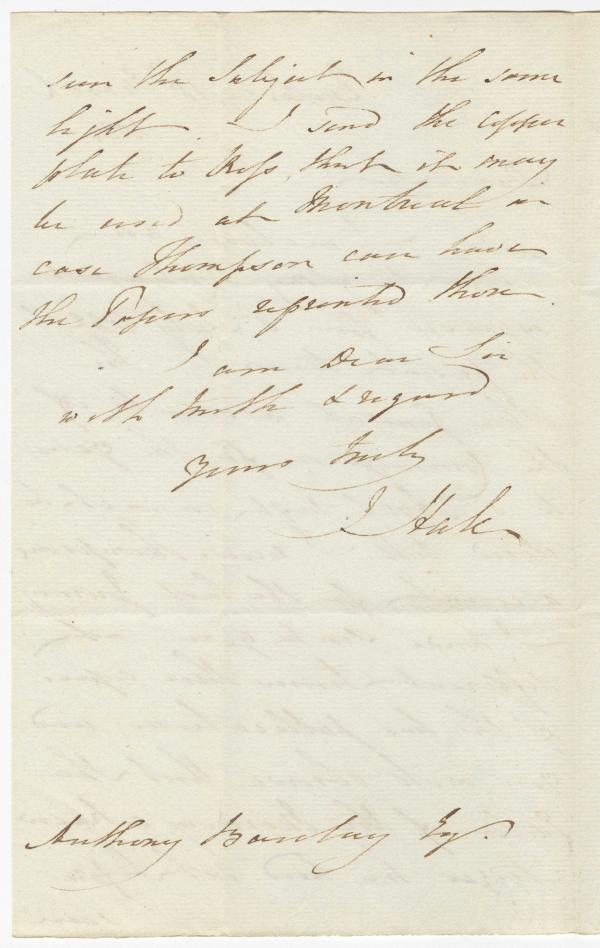 seen the Subject in the same
light. I send the copper
plate to Ross, that it may
be used at Montreal in
case Thompson can have
the Papers reprinted there.
I am Dear Sir
with truth & regard
yours truly
J Hale
Anthony Barclay Esq.